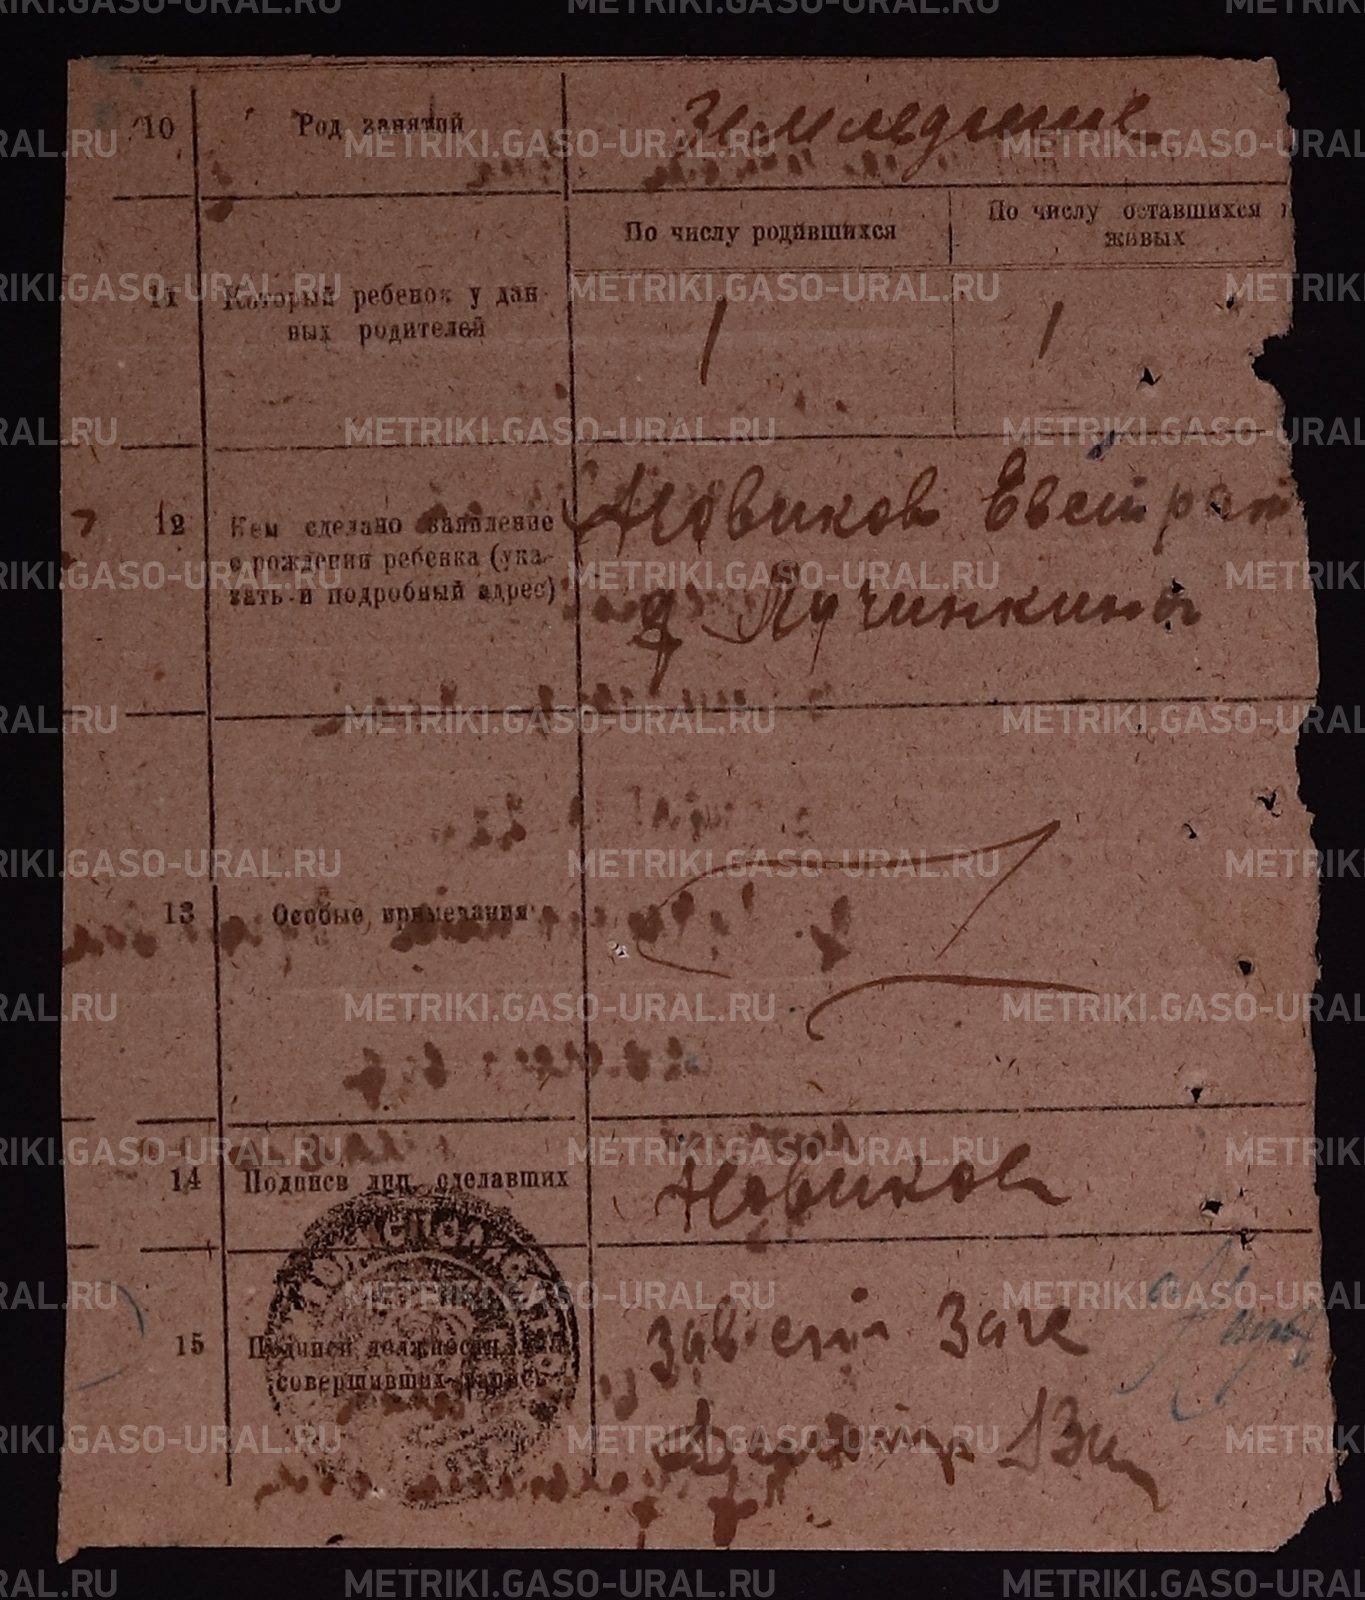 10 Род занятий Земледелие
По числу родившихся По числу оставшихся
живых
11 Который ребенок у дан-
ных родителей 1 1
12 Кем сделано заявление
о рождении ребенка (ука-
зать и подробный адрес)
Новиков Евстрат
д Пучинкина
13 Особые примечания
14 Подписи лиц, сделавших
Новиков
15 Подписи должностных
совершивших запись
Зав
METRIKI.GASO-URAL.RU